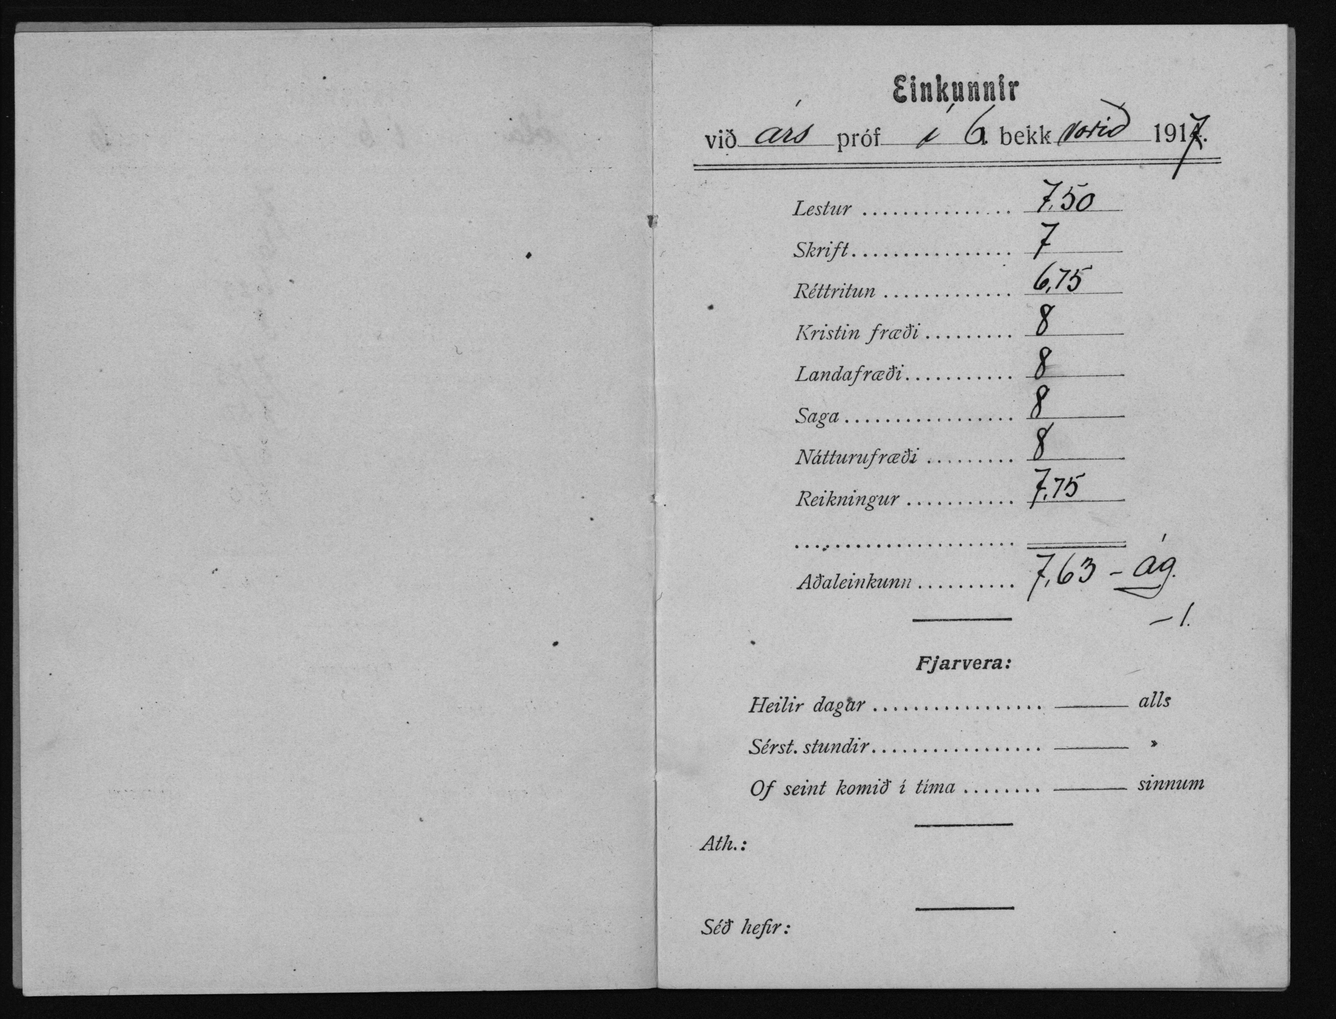 Einkunnir
við árs próf í 6. bekk vorið 1917.
Lestur ............... 7,50
Skrift ................ 7
Réttritun ............. 6,75
Kristin fræði ......... 8
Landafræði ........... 8
Saga .................. 8
Nátturufræði ......... 8
Reikningur ........... 7,75
..........................
Aðaleinkunn .......... 7,63 - ág.
- 1.
Fjarvera:
Heilir dagar ................. alls
Sérst. stundir ................. »
Of seint komið í tíma ........ sinnum
Ath.:
Séð hefir: